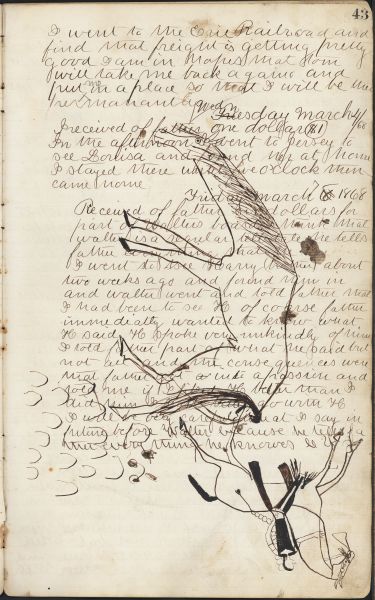 43
I went to the Erie Railroad and
find that freight is getting pretty
good I am in hopes that Tom
will take me back again and
put me in a place so that I will be
permanant
Wedn
Tuesday March 4/68
I received of father one dollar ($1)
In the afternoon I went to Jersey to
see Louisa and found her at home
I stayed there until o'clock then
came home
Friday March 6 1868
Received of father dollars for
part of Walters board I think that
walter is a regular he tells
father
I went to see Harry about
two weeks ago and found him in
and walter went and told father that
I had been to see H of course father
immediatly wanted to know what
H said H spoke very unkindly of him
I told father part of what he said but
not all and the consequences were
that father got in a passion and
told me
did
I will be very careful what I say in
future before Walter because he tells
every thing he knows